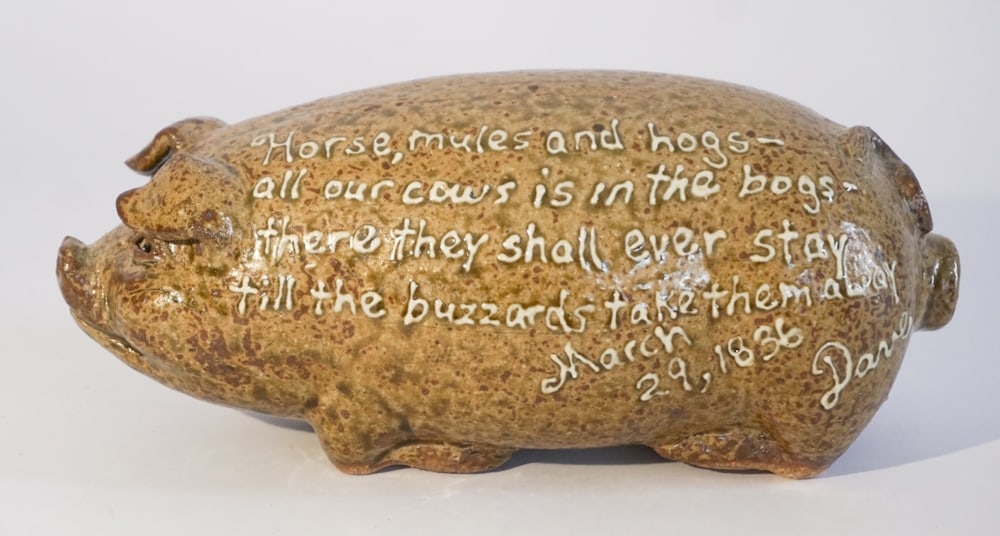 "Horse, mules and hogs-
all our cows is in the bogs-
there they shall ever stay
till the buzzards take them away
March
29, 1836
Dave